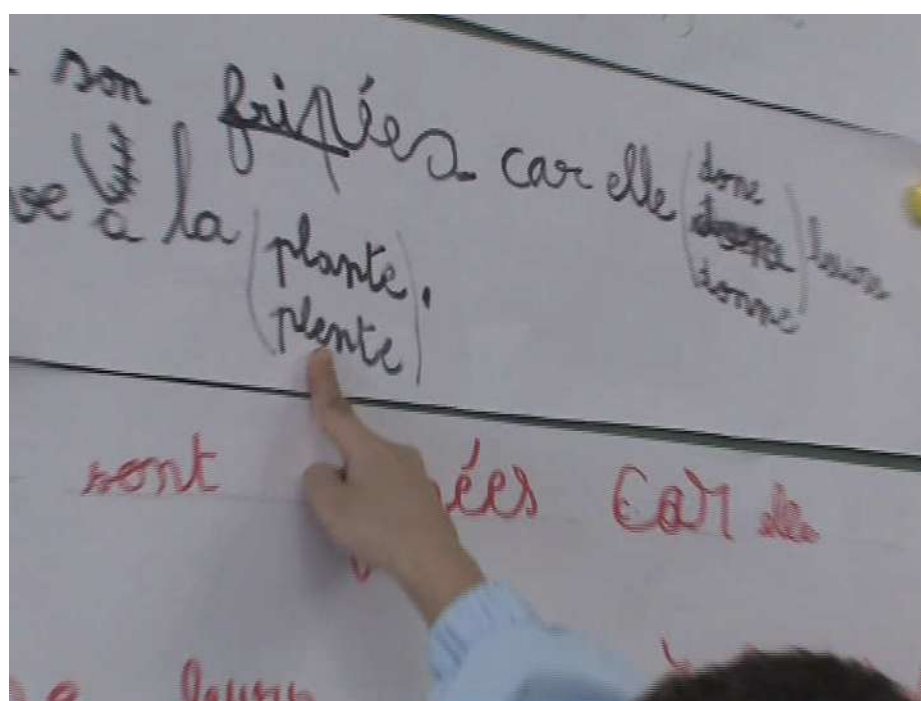 son fripées car elle (done donne) leur
ve à la (plante. plente)
sont ées car elle